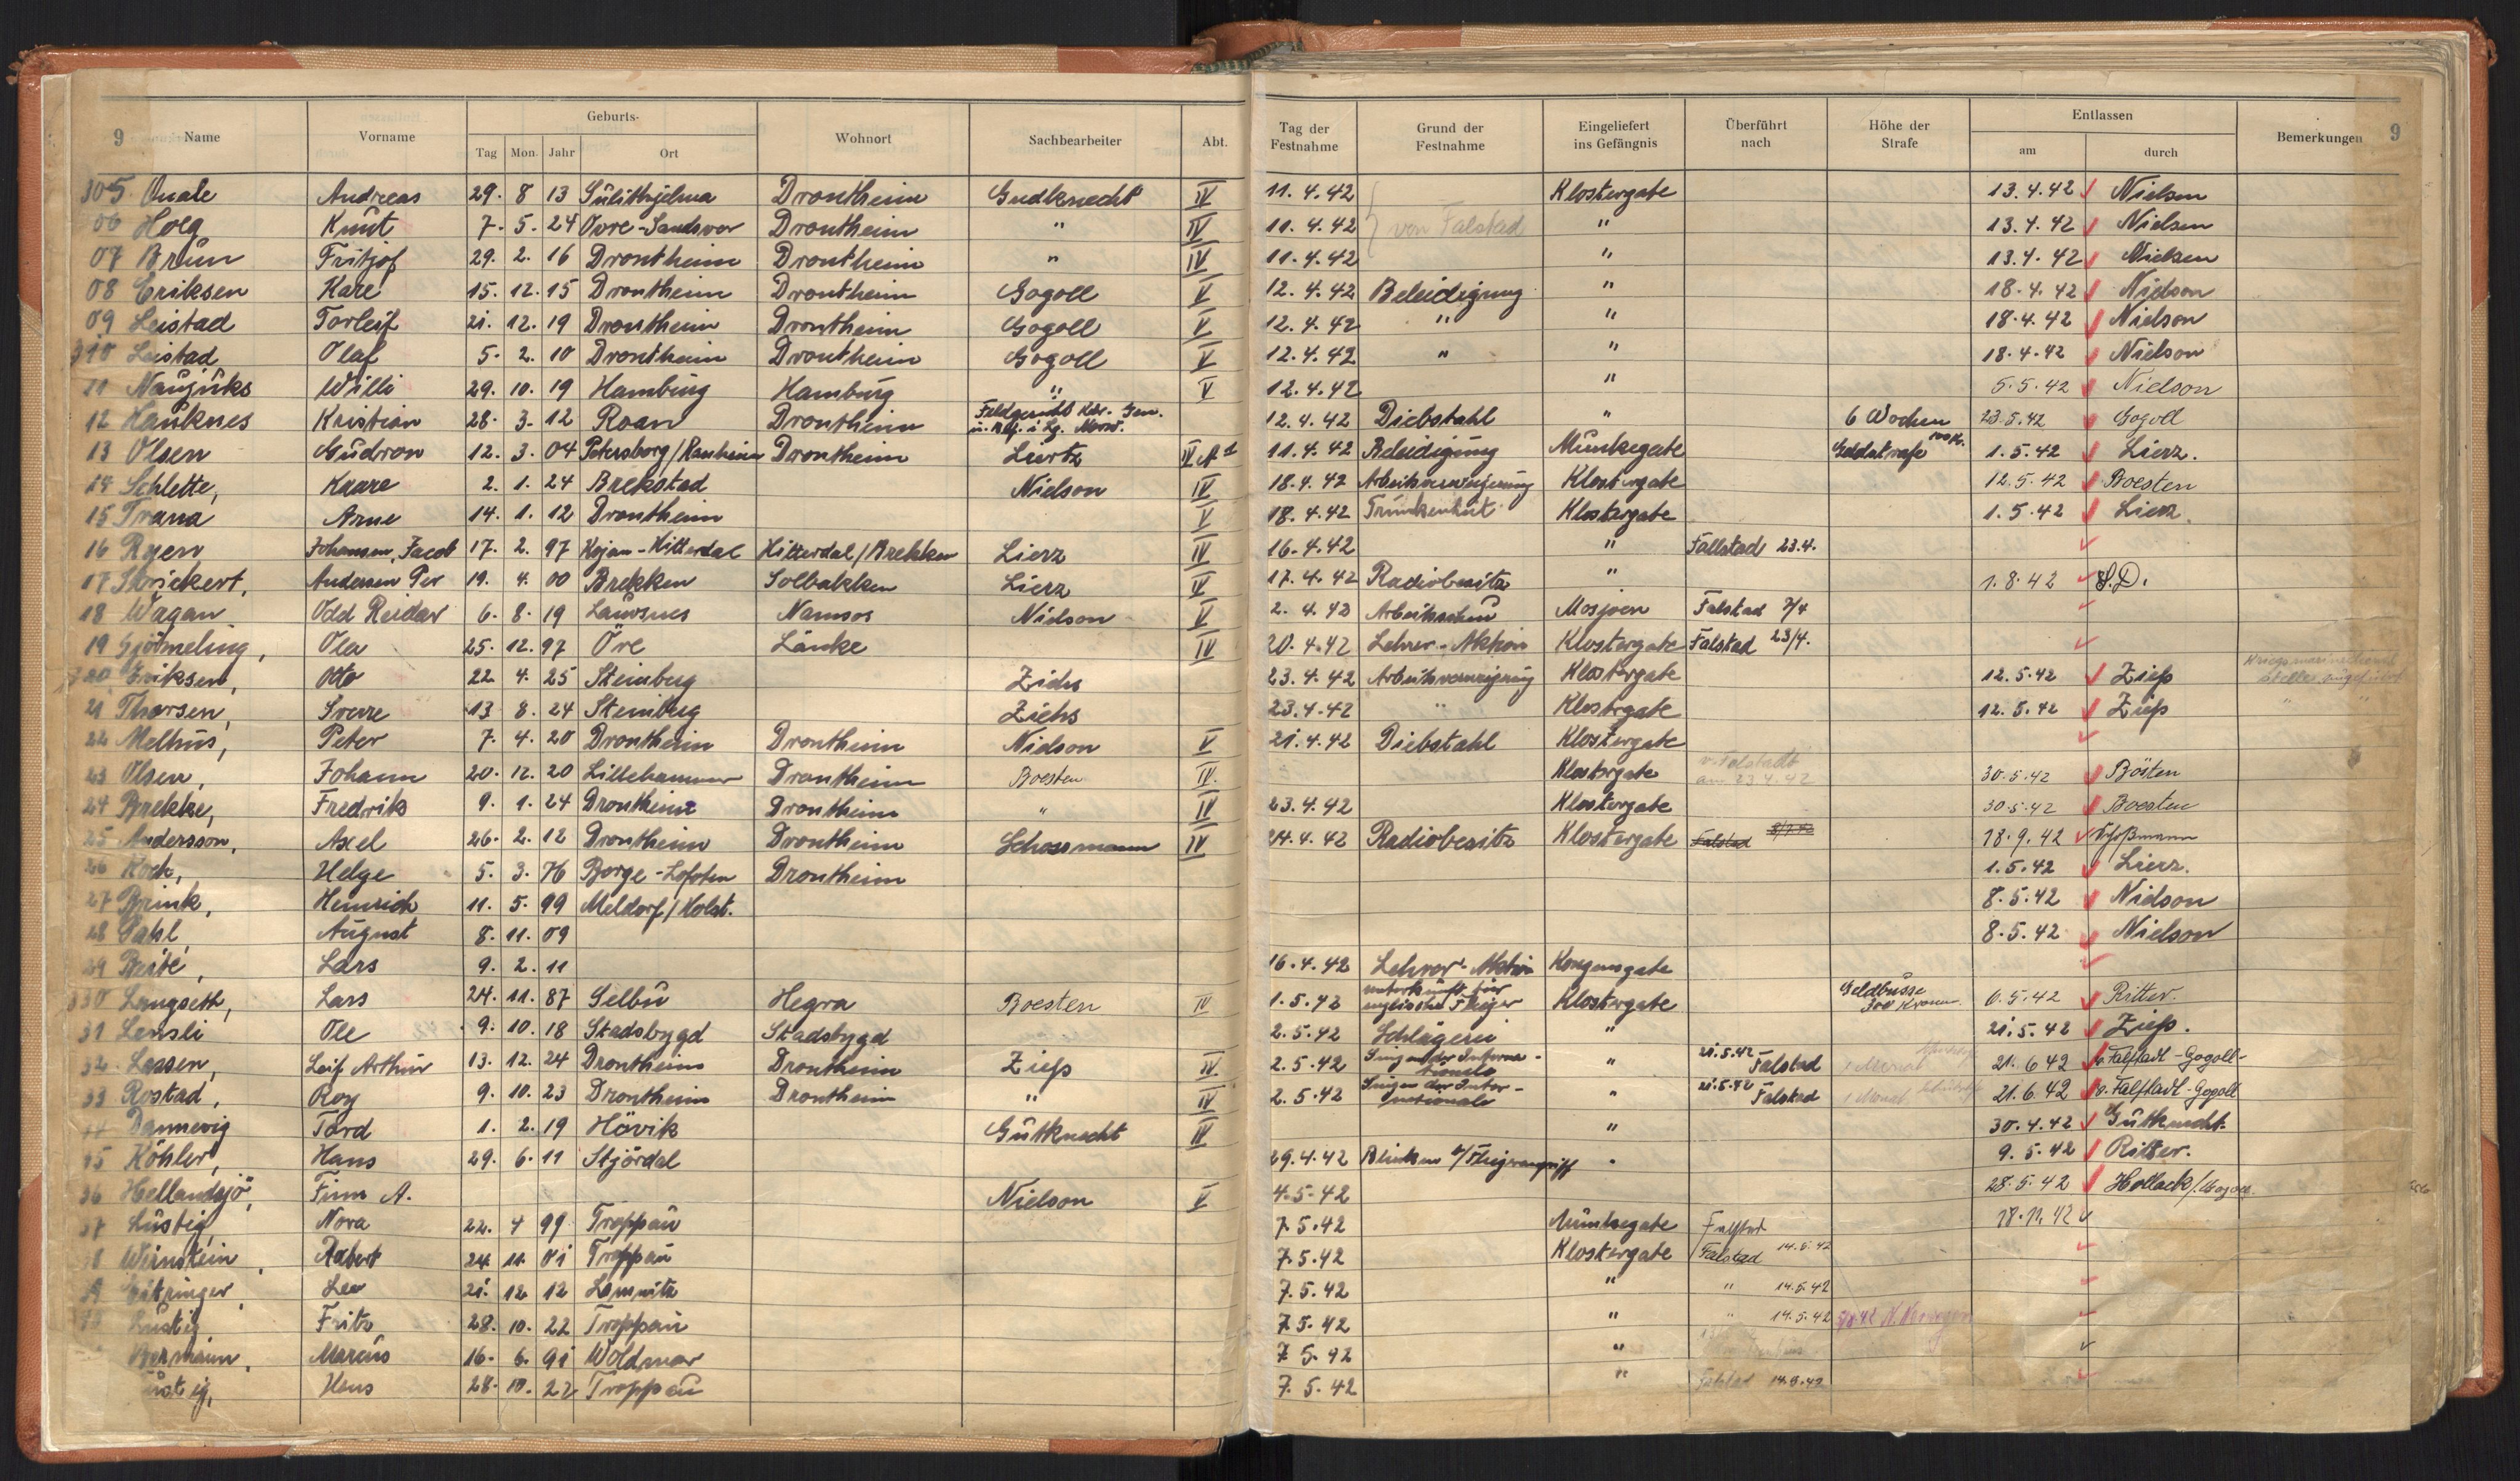 9 Name Vorname Geburts- Wohnort Sachbearbeiter Abt. Tag der Festnahme Grund der Festnahme Eingeliefert ins Gefängnis Überführt nach Höhe der Strafe Entlassen Bemerkungen 9
Tag Mon. Jahr Ort am durch
305 Quale Andreas 29. 8 13 Sülithjelma Drontheim Gudknecht IV 11.4.42 von Falstad Klostergate 13.4.42 Nielson
06 Hoeg Knut 7. 5. 24 Övre-Sandsvær Drontheim " IV 11.4.42 " 13.4.42 Nielson
07 Brun Fritjof 29. 2. 16 Drontheim Drontheim " IV 11.4.42 " 13.4.42 Nielsen
08 Eriksen Kare 15. 12. 15 Drontheim Drontheim Gogoll V 12.4.42 Beleidigung " 18.4.42 Nielson
09 Leistad Torleif 21. 12. 19 Drontheim Drontheim Gogoll V 12.4.42 " " 18.4.42 Nielson
310 Leistad Olaf 5. 2. 10 Drontheim Drontheim Gogoll V 12.4.42 " " 18.4.42 Nielson
11 Naujuks Willi 29. 10. 19 Hamburg Hamburg " V 12.4.42 " 5.5.42 Nielson
12 Hauknes Kristian 28. 3. 12 Roan Drontheim Feldgericht Kdr. Gen. 12.4.42 Diebstahl " 6 Wochen 23.5.42 Gogoll
13 Olsen Gudron 12. 3. 04 Petersborg/Ranheim Drontheim Liertz 11.4.42 Beleidigung Munkegate Geldstrafe 1.5.42 Lierz.
14 Schlette, Kaare 2. 1. 24 Brekstad Nielson IV 18.4.42 Arbeitsverweigerung Klostergate 12.5.42 Boesten
15 Trana Arne 14. 1. 12 Drontheim V 18.4.42 Trunkenheit Klostergate 1.5.42 Lierz.
16 Ryen Johansen, Jacob 17. 2. 97 Kojan-Hitterdal Hitterdal/Brekken Lierz IV 16.4.42 " Fallstad 23.4.
17 Strickert, Andersen Per 19. 4. 00 Brekken Solbakken Lierz V 17.4.42 Radiobesitz " 1.8.42 S.D.
18 Wagan Odd Reidar 6. 8. 19 Lauvsnes Namsos Nielson V 2.4.42 Arbeitsscheu Mosjoen Falstad 7/4
19 Gjömeling, Ola 25. 12. 97 Öre Länke IV 20.4.42 Lehrer-Aktion Klostergate Falstad 23/4.
320 Eriksen, Otto 22 4. 25 Steinberg Ziehs 23.4.42 Arbeitsverweigerung Klostergate 12.5.42 Zieß
21 Thorsen, Sverre 13 8. 24 Steinberg Ziehs 23.4.42 " Klostergate 12.5.42 Zieß " "
22 Melhus, Peter 7. 4. 20 Drontheim Drontheim Nielson V 21.4.42 Diebstahl Klostergate
23 Olsen, Johann 20. 12. 20 Lillehammer Drontheim Boesten IV. Klostergate am 23.4.42 30.5.42 Bösten
24 Brekke, Fredrik 9. 1. 24 Drontheim Drontheim " IV 23.4.42 Klostergate 30.5.42 Boesten
25 Andersson, Axel 26. 2. 12 Drontheim Drontheim Schossmann IV 24.4.42 Radiobesitz Klostergate Falstad 18.9.42 Schoßmann
26 Koch, Helge 5. 3. 76 Borge-Lofoten Drontheim 1.5.42 Lierz.
27 Brink, Heinrich 11. 5. 99 Meldorf/Holst. 8.5.42 Nielson
28 Pahl, August 8. 11. 09 8.5.42 Nielson
29 Lars 9. 2. 11 16.4.42 Lehrer-Aktion Kongensgate
330 Langseth, Lars 24. 11. 87 Selbu Hegra Boesten IV 1.5.42 Unterkunft für englische Flieger Klostergate Geldbusse 300 Kronen. 6.5.42 Ritter.
31 Lensli Ole 9. 10. 18 Stadsbygd Stadsbygd 2.5.42 Schlägerei " 21.5.42 Zieß.
32. Lassen, Leif Arthur 13. 12. 24 Drontheim Drontheim Zieß IV. 2.5.42 Singen der Internationale " 21.5.42 Falstad 1 Monat 21.6 42 v. Falstadt-Gogoll-
33 Rostad, Roy 9. 10. 23 Drontheim Drontheim " IV 2.5.42 Singen der Internationale " 21.5.42 Falstad 1 Monat 21.6.42 v. Falstadt-Gogoll
Dannevig Tord 1. 2. 19 Hövik Gutknecht IV " 30.4.42 Gutknecht.
35 Köhler, Hans 29. 6. 11 Stjördal 29.4.42 Blinken b/Fliegerangriff " 9.5.42 Ritter.
36 Hellandsjö, Finn A. Nielson V 4.5.42 28.5.42 Hollack/Gogoll.
37 Lustig, Nora 22. 4 99 Troppau 7.5.42 Munkegate Falstad 18.11.42
38 Weinstein, Robert 24. 11. 01 Troppau 7.5.42 Klostergate Falstad 14.5.42
39 Eitzinger, Leo 21. 12 12 7.5.42 " " 14.5.42
Lustig, Fritz 28. 10. 22 Troppau 7.5.42 " " 14.5.42 N. Norwegen
Bermann, Marcus 16. 6. 91 Woldmar 7.5.42 "
Lustig, Hans 28. 10. 22 Troppau 7.5.42 " Falstad 14.5.42